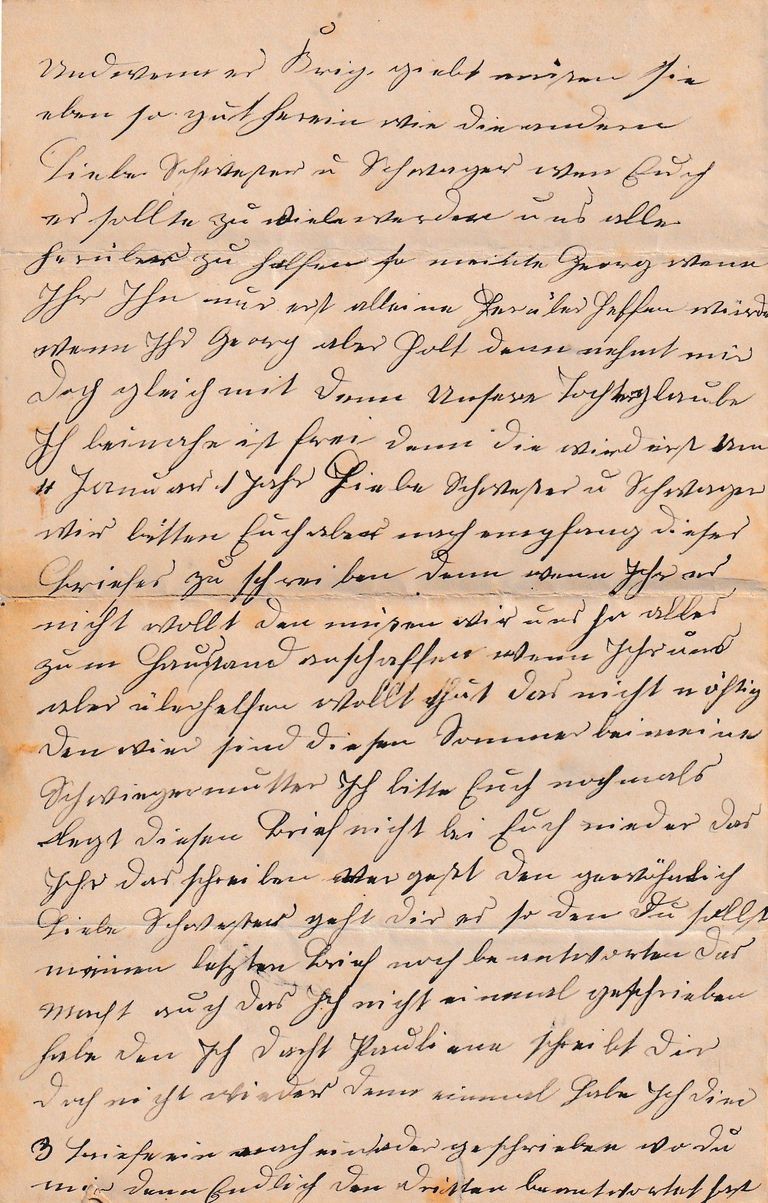 Und wenn es Krig. giebt müssen sie
eben so gut herein wie die andern
Liebe Schwester u Schwager wen Euch
es sollte zu viele werden uns alle
herüber zu helfen so meinte Georg wenn
Ihr Ihn nur erst alleine herüber helfen würde
wenn Ihr Georg aber holt denn nehmt mir
Doch gleich mit denn Unsere Tochter glaube
Ich beinahe ist frei denn die wird erst Um
Januar 1 Jahr Liebe Schwester u Schwager
wir bitten Euch aber nach empfang dieses
briefes zu schreiben denn wenn Ihr es
nicht wollt den müssen wir uns ja alles
zum Hausstand anschaffen wenn Ihr uns
aber überhelfen wollt thut das nicht nöhtig
den wier sind diesen Sommer bei meine
Schwiegermutter Ich bitte Euch nochmals
legt diesen Brief nicht bei Euch nieder das
Ihr das schreiben vergest den gewöhnlich
Liebe Schwester geht dir es so den du sollst
meinen letzten Brief noch beantworten das
Macht auch das Ich nicht einmal geschrieben
habe den Ich dacht Pauliene schreibt dir
doch nicht wieder denn einmal habe Ich dir
3 briefe ein nach einader geschrieben wo du
mir denn Endlich den dritten beantwortet hast